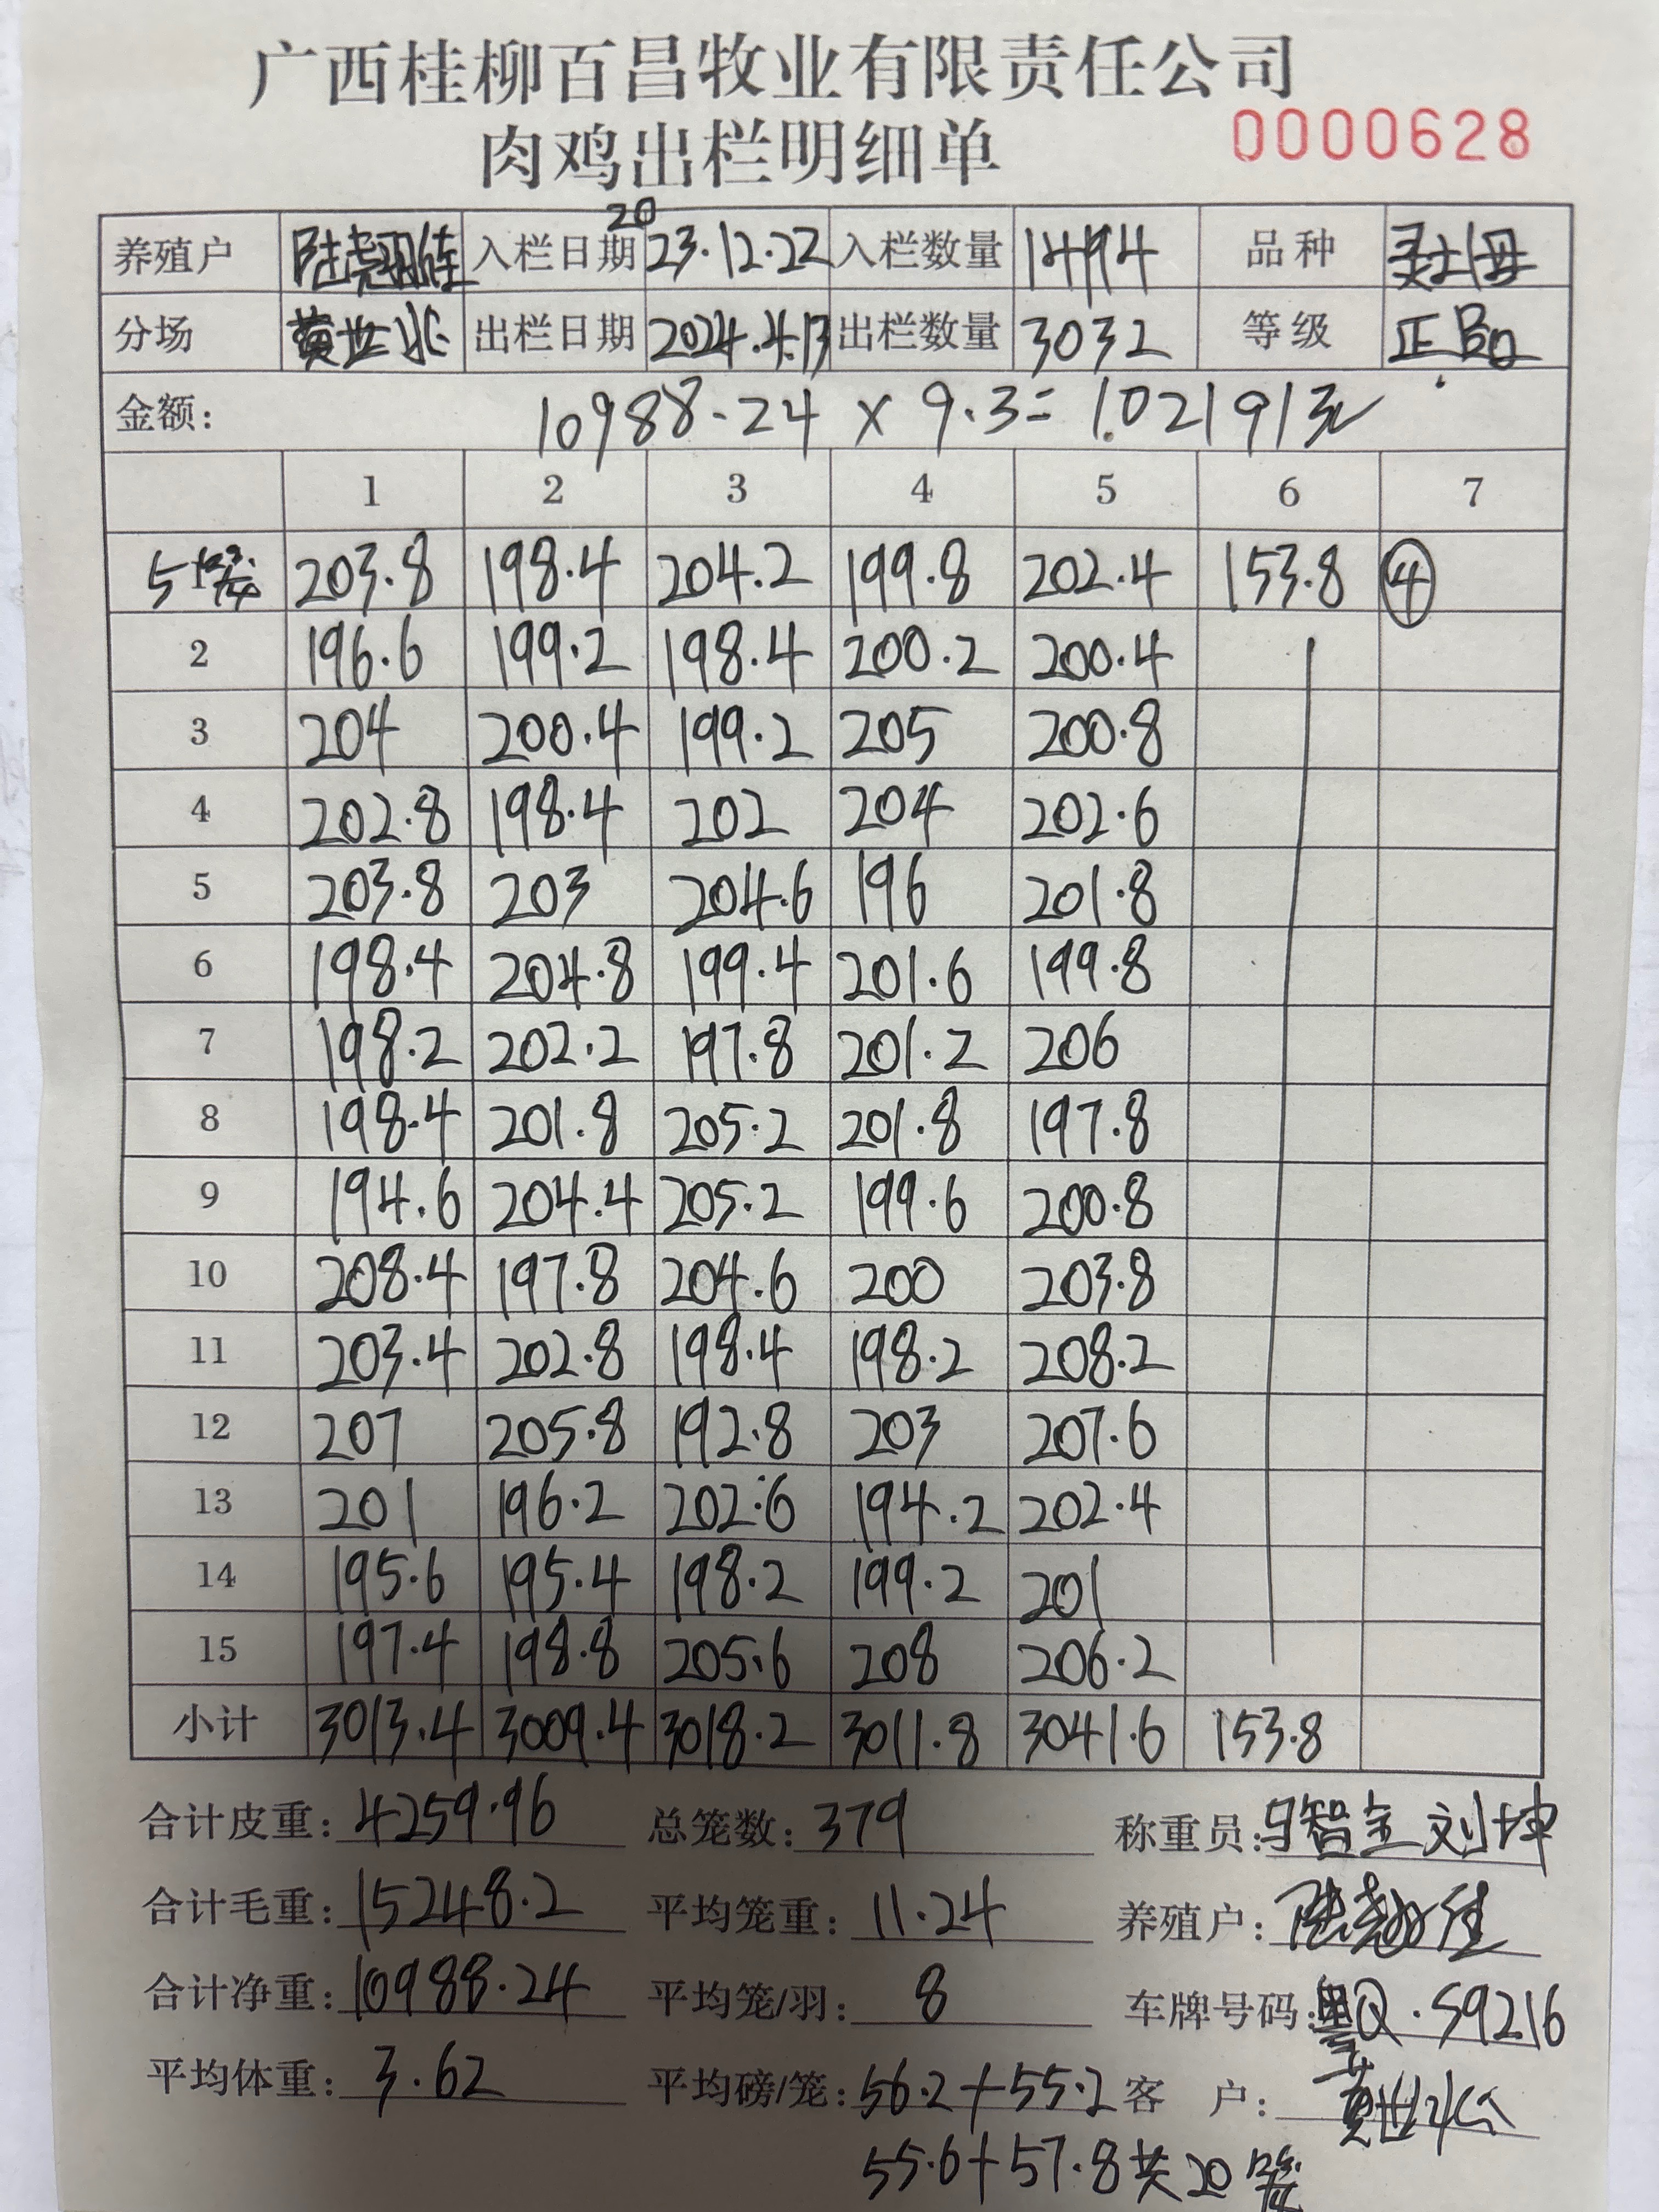 广西桂柳百昌牧业有限责任公司
肉鸡出栏明细单 0000628
养殖户 入栏日期 2023.12.22 入栏数量 14494 品种
分场 出栏日期 2024.4.13 出栏数量 3032 等级 正品
金额: 10988.24 × 9.3 = 102191元
1 2 3 4 5 6 7
5笼 203.8 198.4 204.2 199.8 202.4 153.8 ④
2 196.6 199.2 198.4 200.2 200.4
3 204 200.4 199.2 205 200.8
4 202.8 198.4 202 204 202.6
5 203.8 203 204.6 196 201.8
6 198.4 204.8 199.4 201.6 199.8
7 198.2 202.2 197.8 201.2 206
8 198.4 201.8 205.2 201.8 197.8
9 194.6 204.4 205.2 199.6 200.8
10 208.4 197.8 204.6 200 203.8
11 203.4 202.8 198.4 198.2 208.2
12 207 205.8 192.8 203 207.6
13 201 196.2 202.6 194.2 202.4
14 195.6 195.4 198.2 199.2 201
15 197.4 198.8 205.6 208 206.2
小计 3013.4 3009.4 3018.2 3011.8 3041.6 153.8
合计皮重: 4259.96 总笼数: 379 称重员: 刘坤
合计毛重: 15248.2 平均笼重: 11.24 养殖户:
合计净重: 10988.24 平均笼/羽: 8 车牌号码: 粤Q·S9216
平均体重: 3.62 平均磅/笼: 56.2+55.2 客 户:
55.6+57.8共20笼